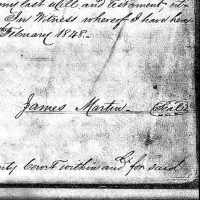 my last will and testament
In Witness whereof I have
February 1848.-
James Martin
ity Court within and for said